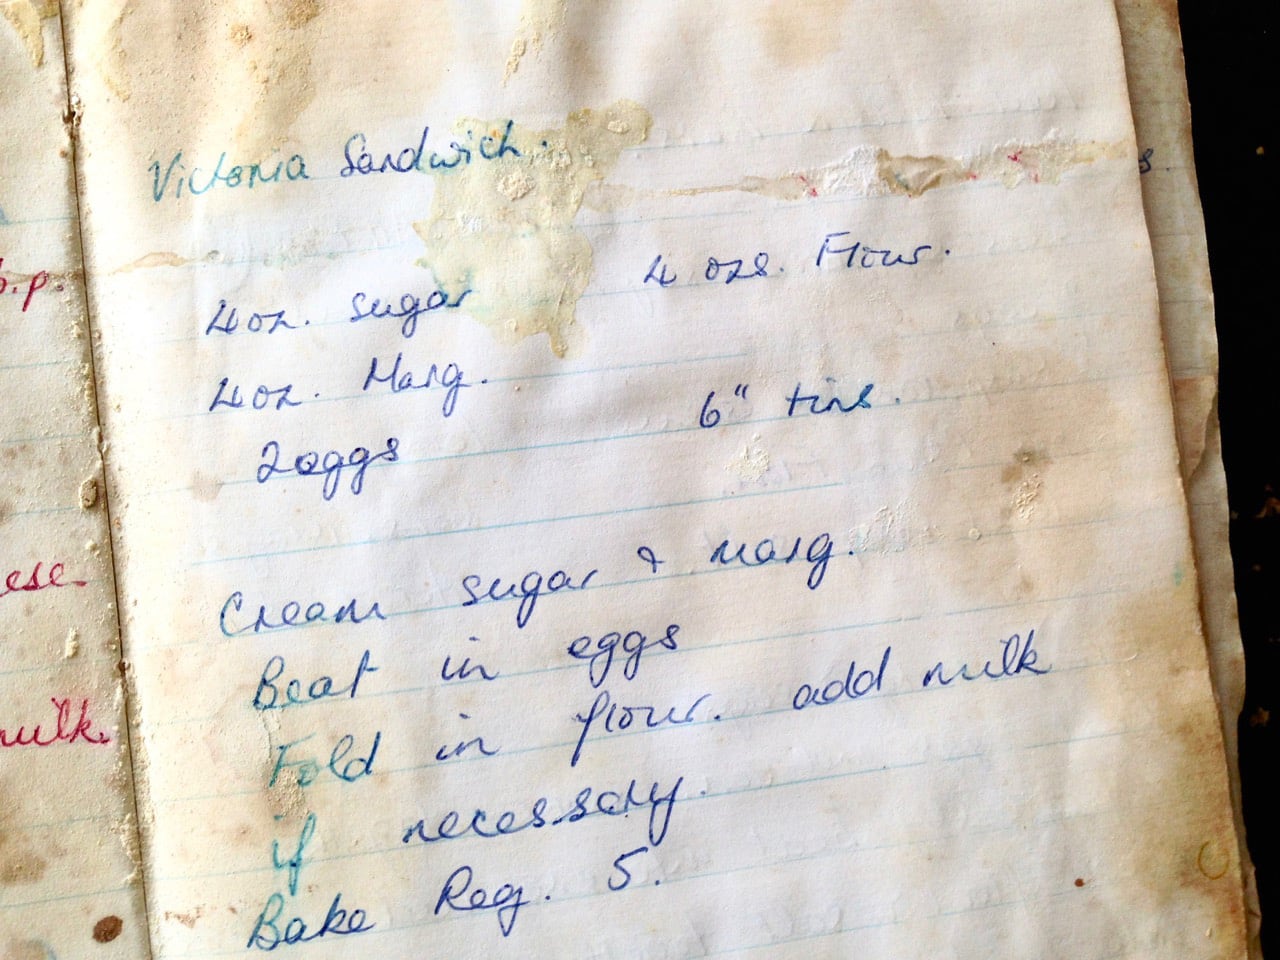 Victoria Sandwich.
4 oz. sugar
4 ozs. Flour.
4 oz. Marg.
6" tins.
2 eggs
Cream sugar & marg.
Beat in eggs
Fold in flour. add milk
if necessary.
Bake Reg. 5.
b.p.
milk.